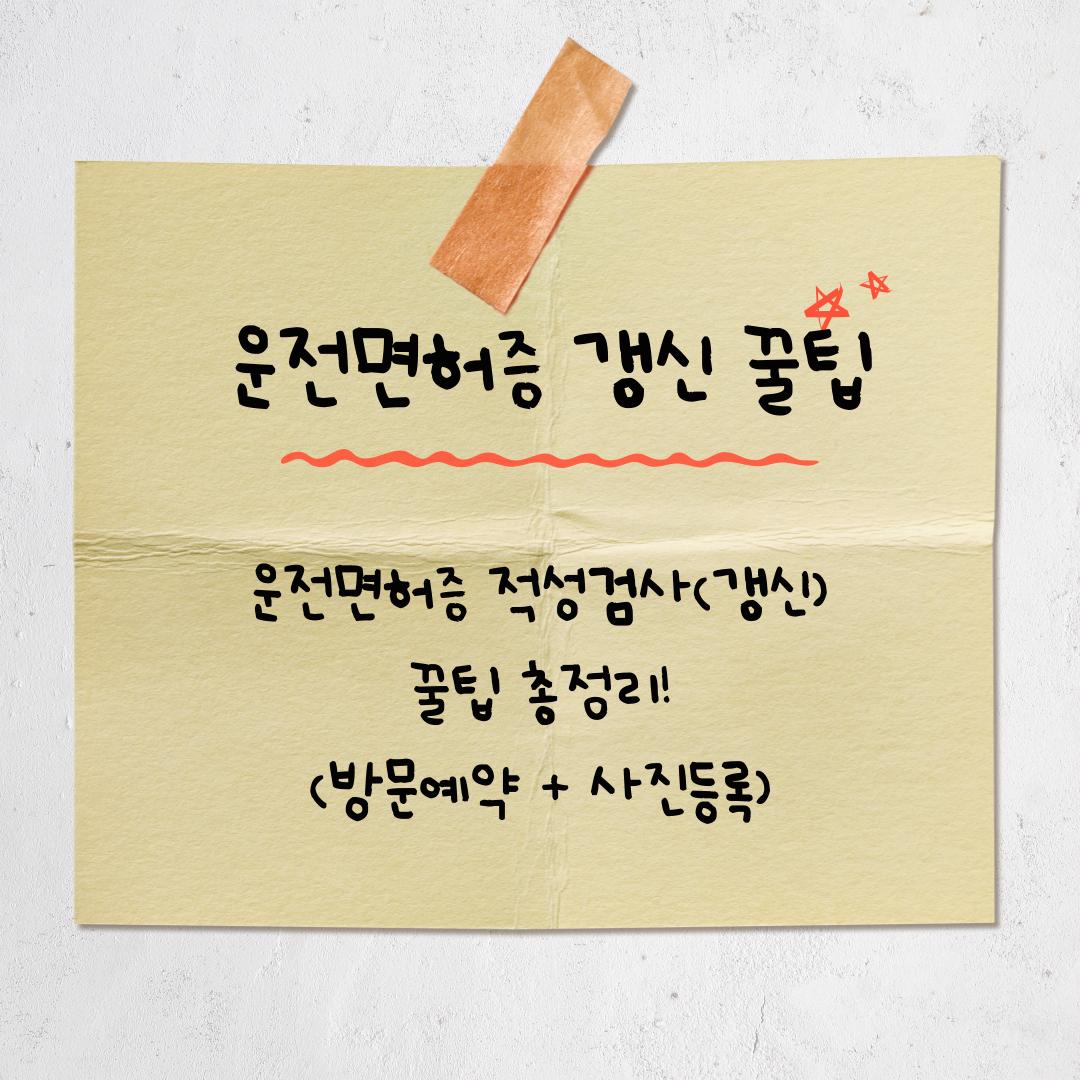 운전면허증 갱신 꿀팁
운전면허증 적성검사(갱신)
꿀팁 총정리!
(방문예약 + 사진등록)